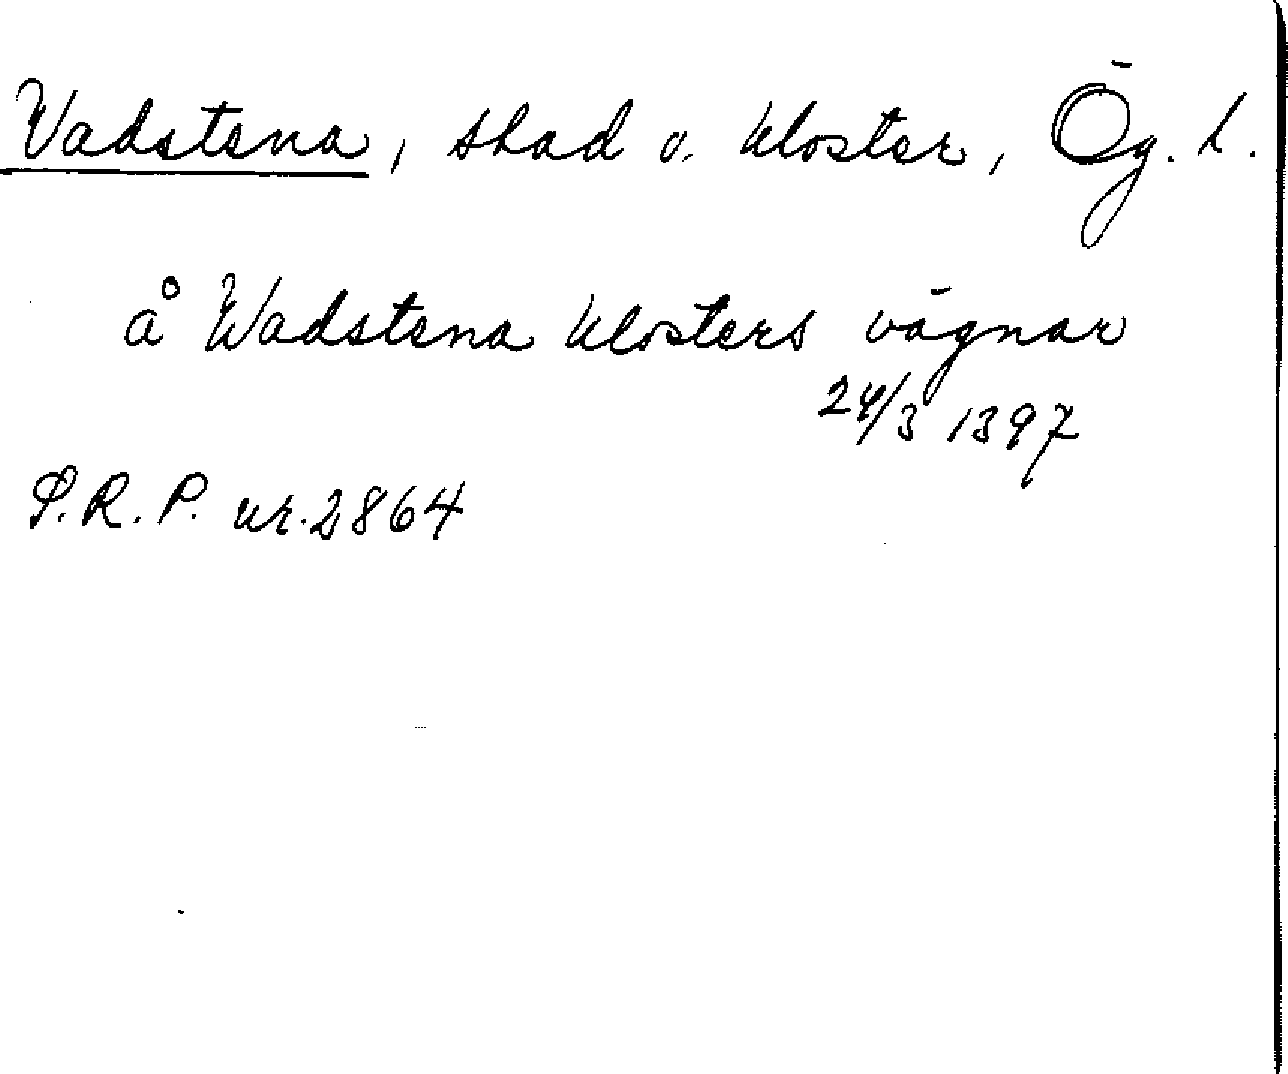 Vadstena, stad o. kloster, Ög. l.
å Wadstena klosters vägnar
24/3 1397
S.R.P. nr. 2864